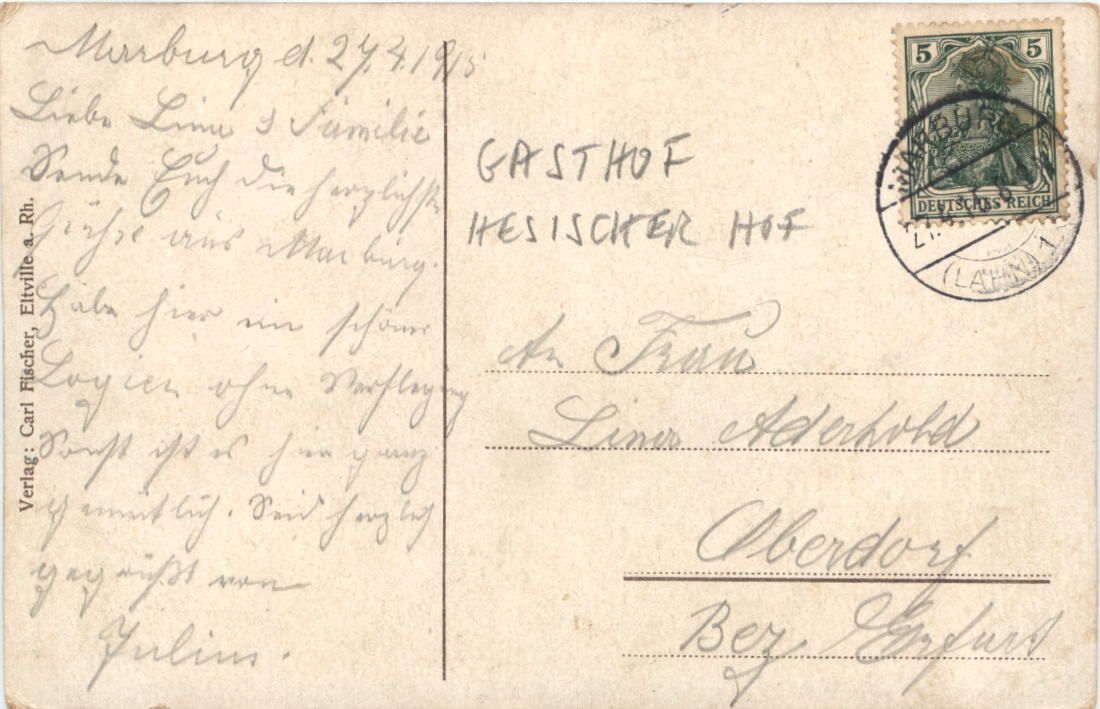 Marburg d. 27.4.1915
Liebe Lina & Familie
Sende Euch die herzlichste
Grüße aus Marburg.
Habe hier ein schönes
Logien ohne Verflegung
Sonst ist es hier ganz
gemütlich. Seid herzlich
gegrüßt von
Julius.
Verlag: Carl Fischer, Eltville a. Rh.
GASTHOF
HESISCHER HOF
5 5
DEUTSCHES REICH
MARBURG
(LAHN) 1
An Frau
Lina Aderhold
Oberdorf
Bez Erfurt